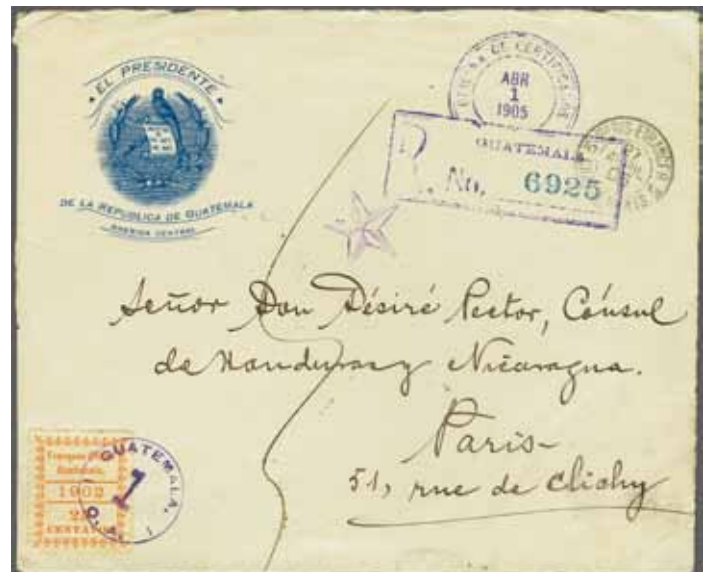 EL PRESIDENTE
DE LA REPUBLICA DE GUATEMALA
AMERICA CENTRAL
ABR
1
1905
R
GUATEMALA
No. 6925
Señor Don Désiré Pector, Cónsul
de Honduras y Nicaragua.
Paris
51, rue de Clichy
Guatemala.
1902
CENTAVOS
GUATEMALA,
1